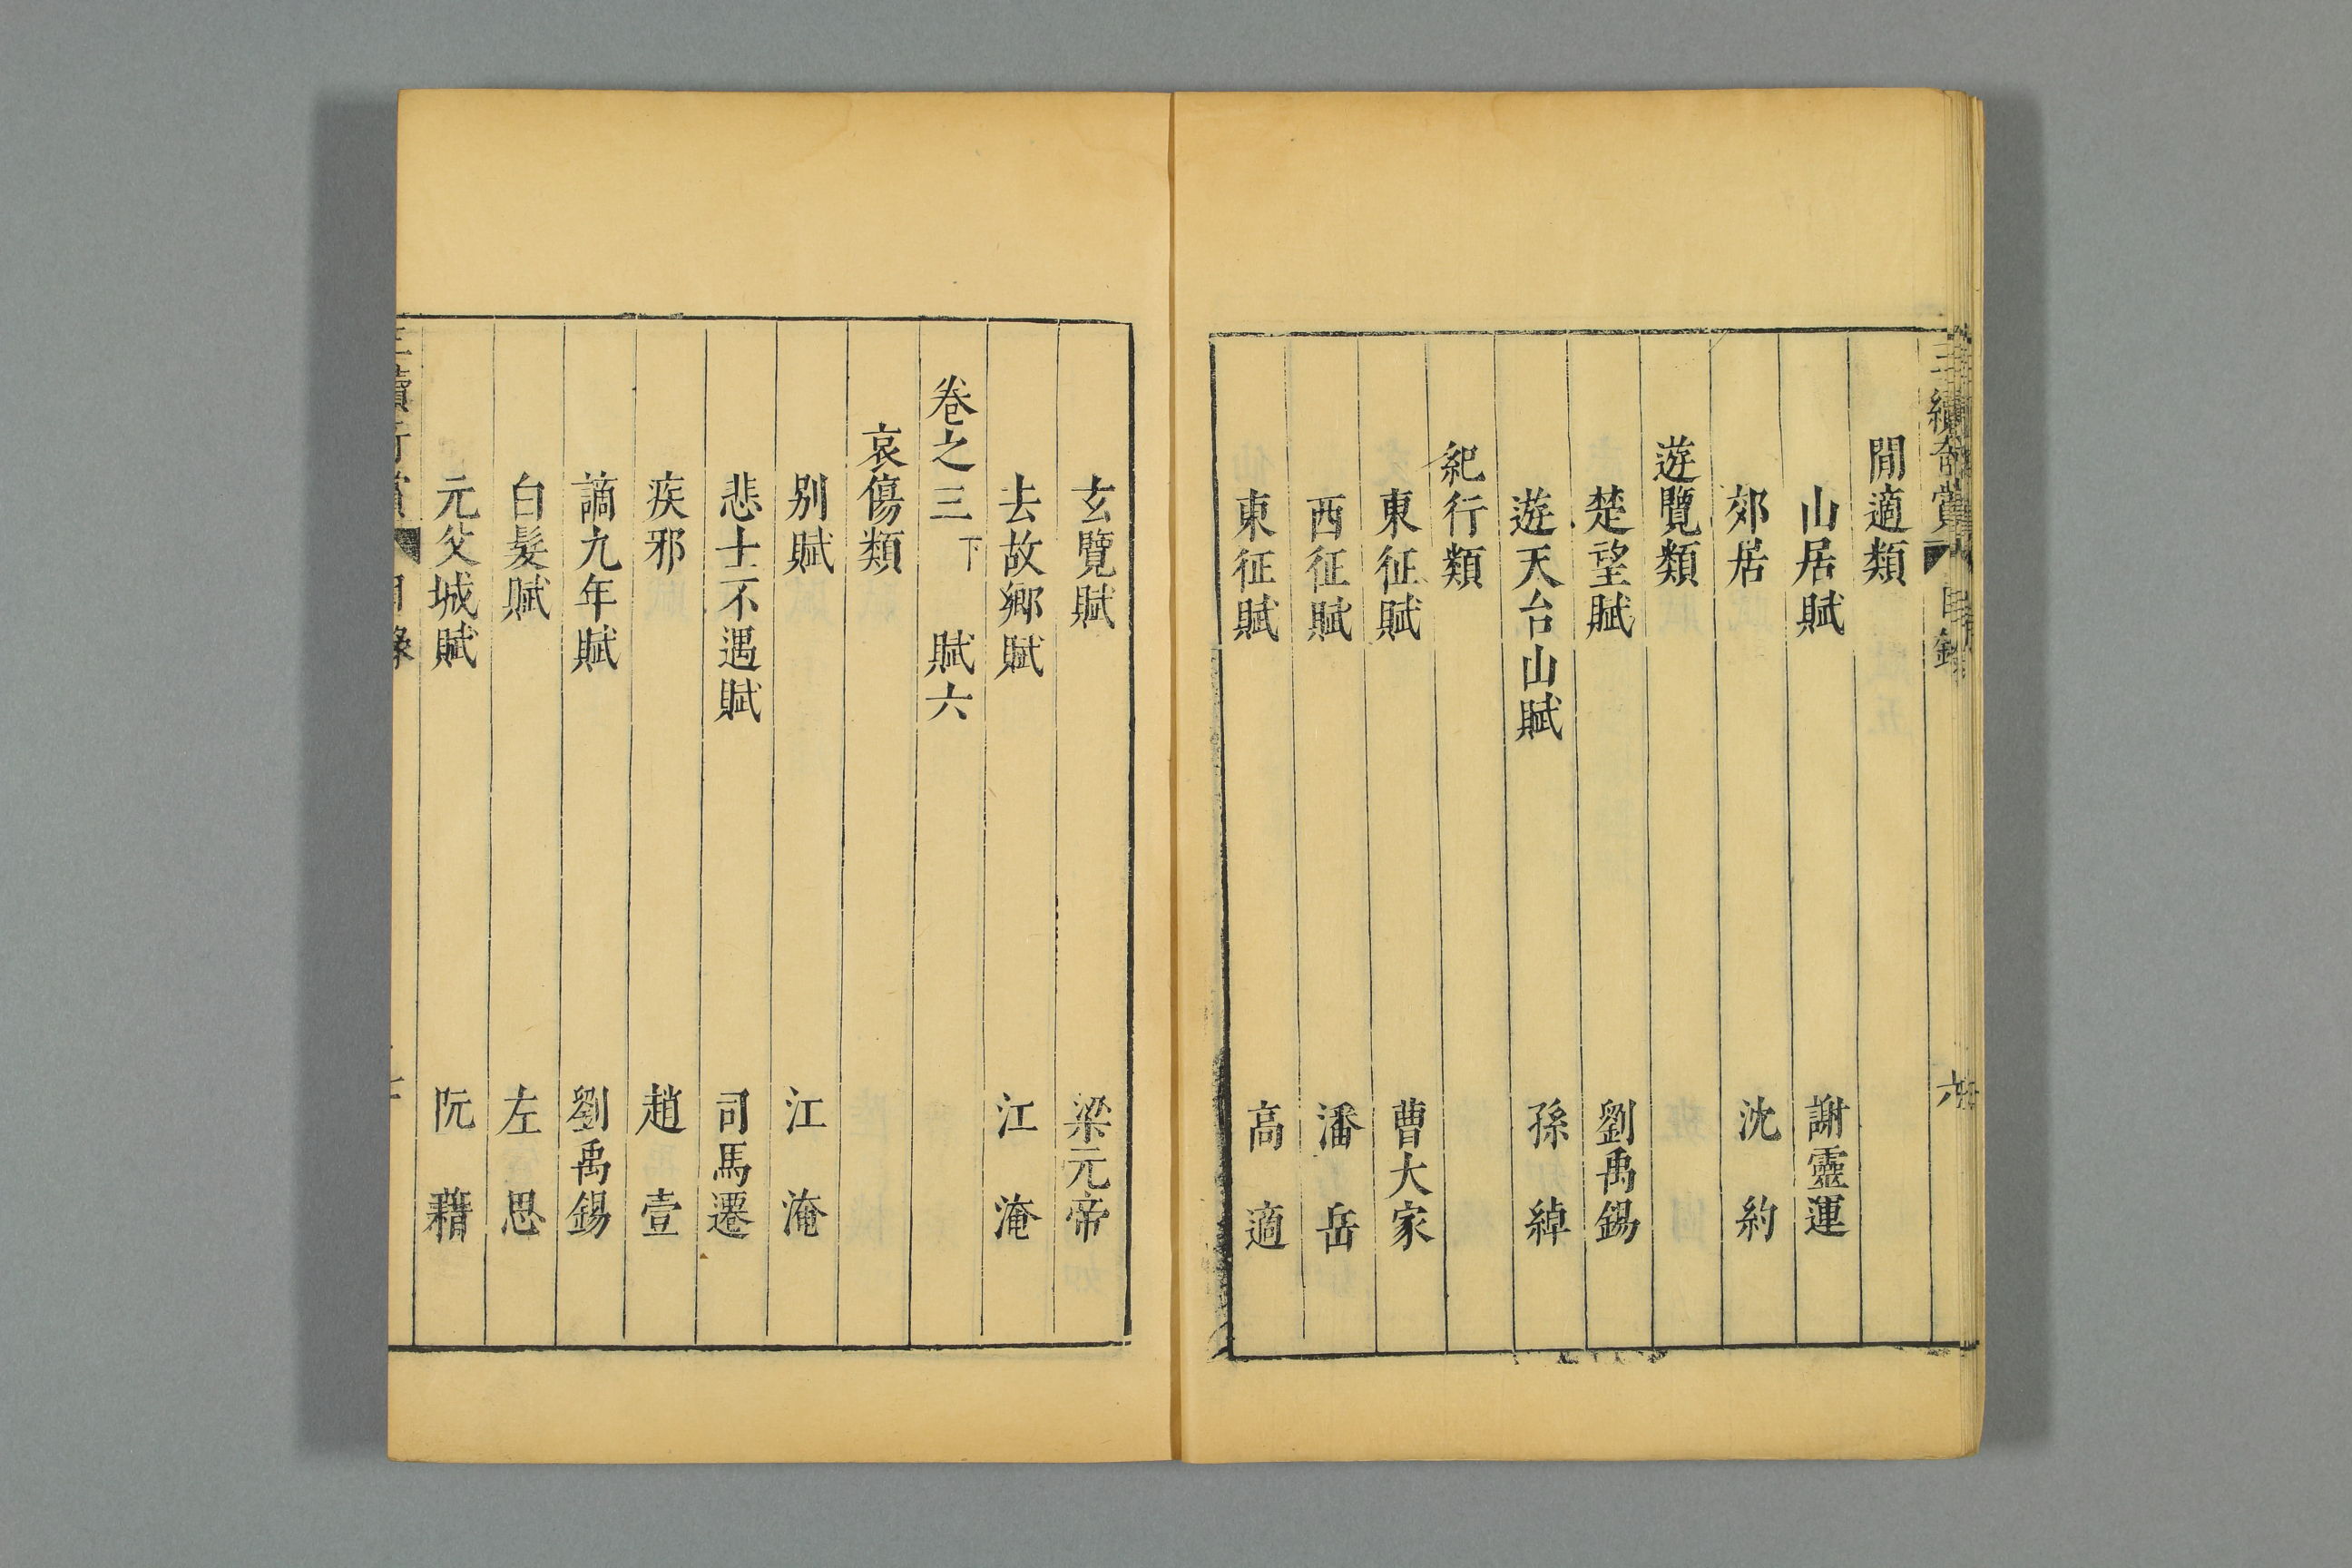 三續奇賞 目錄 六
閒適類
山居賦 謝靈運
郊居 沈約
遊覽類
楚望賦 劉禹錫
遊天台山賦 孫綽
紀行類
東征賦 曹大家
西征賦 潘岳
東征賦 高適
玄覽賦 梁元帝
去故鄉賦 江淹
卷之三下 賦六
哀傷類
別賦 江淹
悲士不遇賦 司馬遷
疾邪 趙壹
謫九年賦 劉禹錫
白髮賦 左思
元父城賦 阮藉